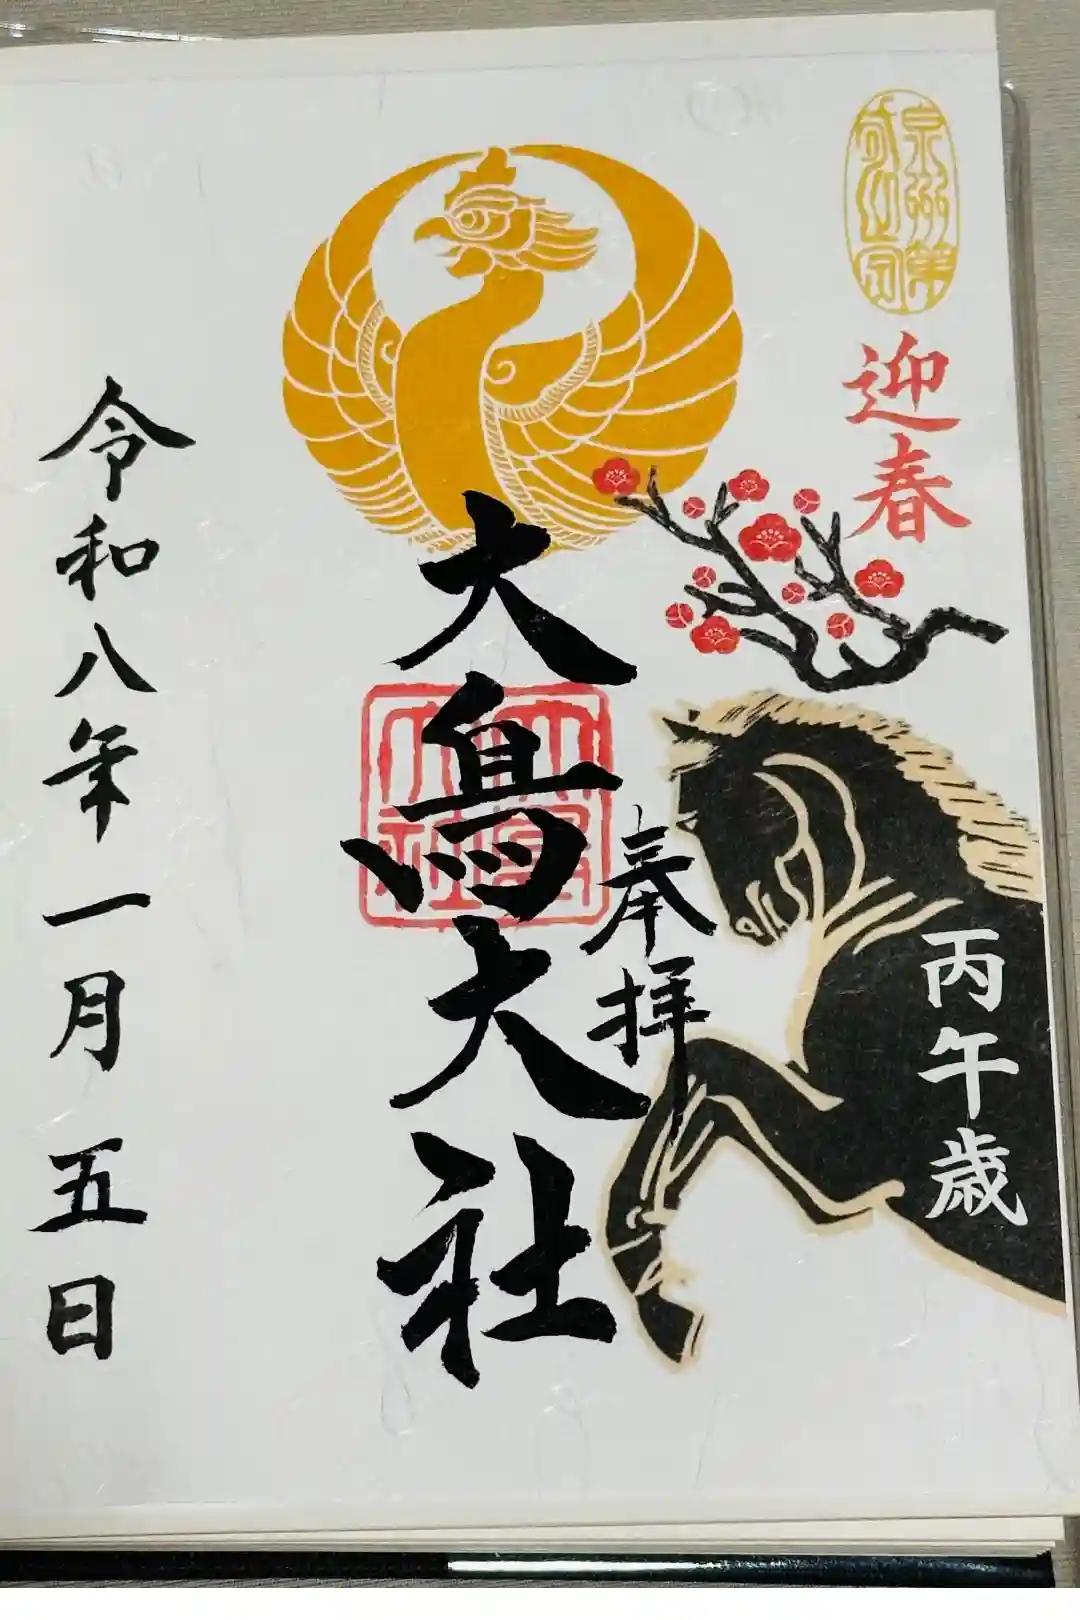 泉州第
迎春
丙午歳
奉拝
大鳥大社
大鳥
大社
令和八年一月五日